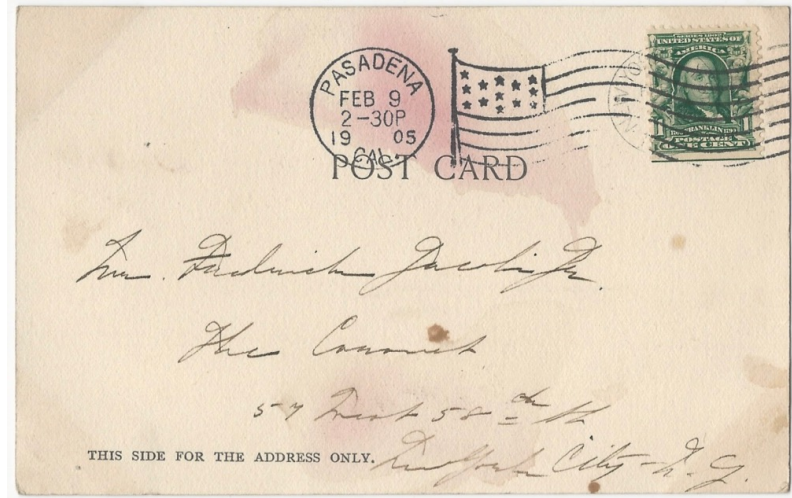 PASADENA
FEB 9
2-30P
19 05
CAL.
SERIES 1902
UNITED STATES OF
AMERICA
FRANKLIN
1 1
POSTAGE
ONE CENT
POST CARD
Frederick Jacobi Jr.
The Coronet
57 West 58th St
New York City N.Y.
THIS SIDE FOR THE ADDRESS ONLY.